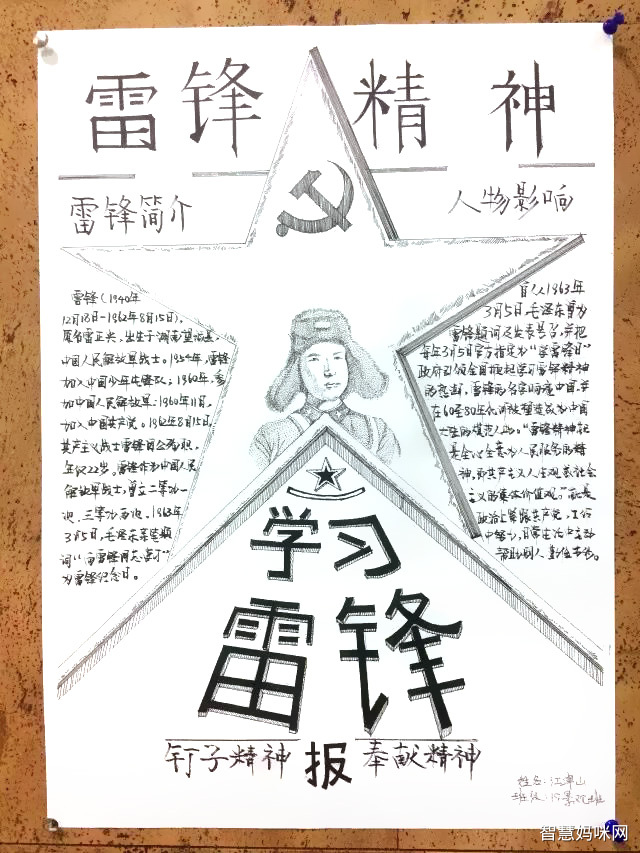 雷锋精神
雷锋简介
雷锋(1940年
12月18日-1962年8月15日),
原名雷正兴,出生于湖南望城县,
中国人民解放军战士。1954年,雷锋
加入中国少年先锋队;1960年,参
加中国人民解放军;1960年11月,
加入中国共产党。1962年8月15日,
共产主义战士雷锋因公殉职,
年仅22岁。雷锋作为中国人民
解放军战士,曾立二等功一
次,三等功两次。1963年
3月5日,毛泽东亲笔题
词"向雷锋同志学习"
为雷锋纪念日。
人物影响
自从1963年
3月5日毛泽东曾为
雷锋题词及发表号召,并把
每年3月5日官方指定为"学雷锋日"
政府引领全国掀起学习雷锋精神
的热潮,雷锋的名字响遍中国,并
在60至80年代
是全心全意为人民服务的精
神,即共产主义人生观及社会
主义的集体价值观。"
政治上紧跟共产党,工作
中
帮助别人
学习
雷锋
钉子精神 报 奉献精神
姓名:江
班级:
智慧妈咪网